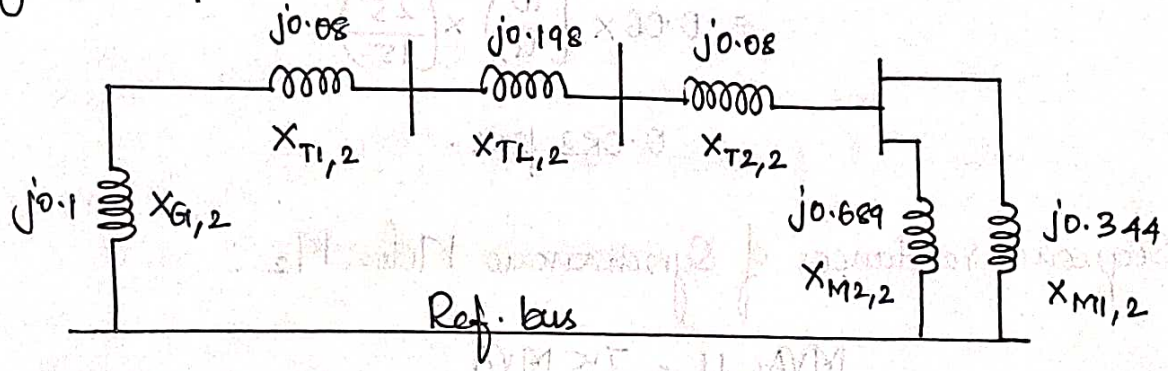 j0.08 j0.198 j0.08
X_T1,2 X_TL,2 X_T2,2
j0.1 X_G1,2 j0.689 j0.344
X_M2,2 X_M1,2
Ref. bus